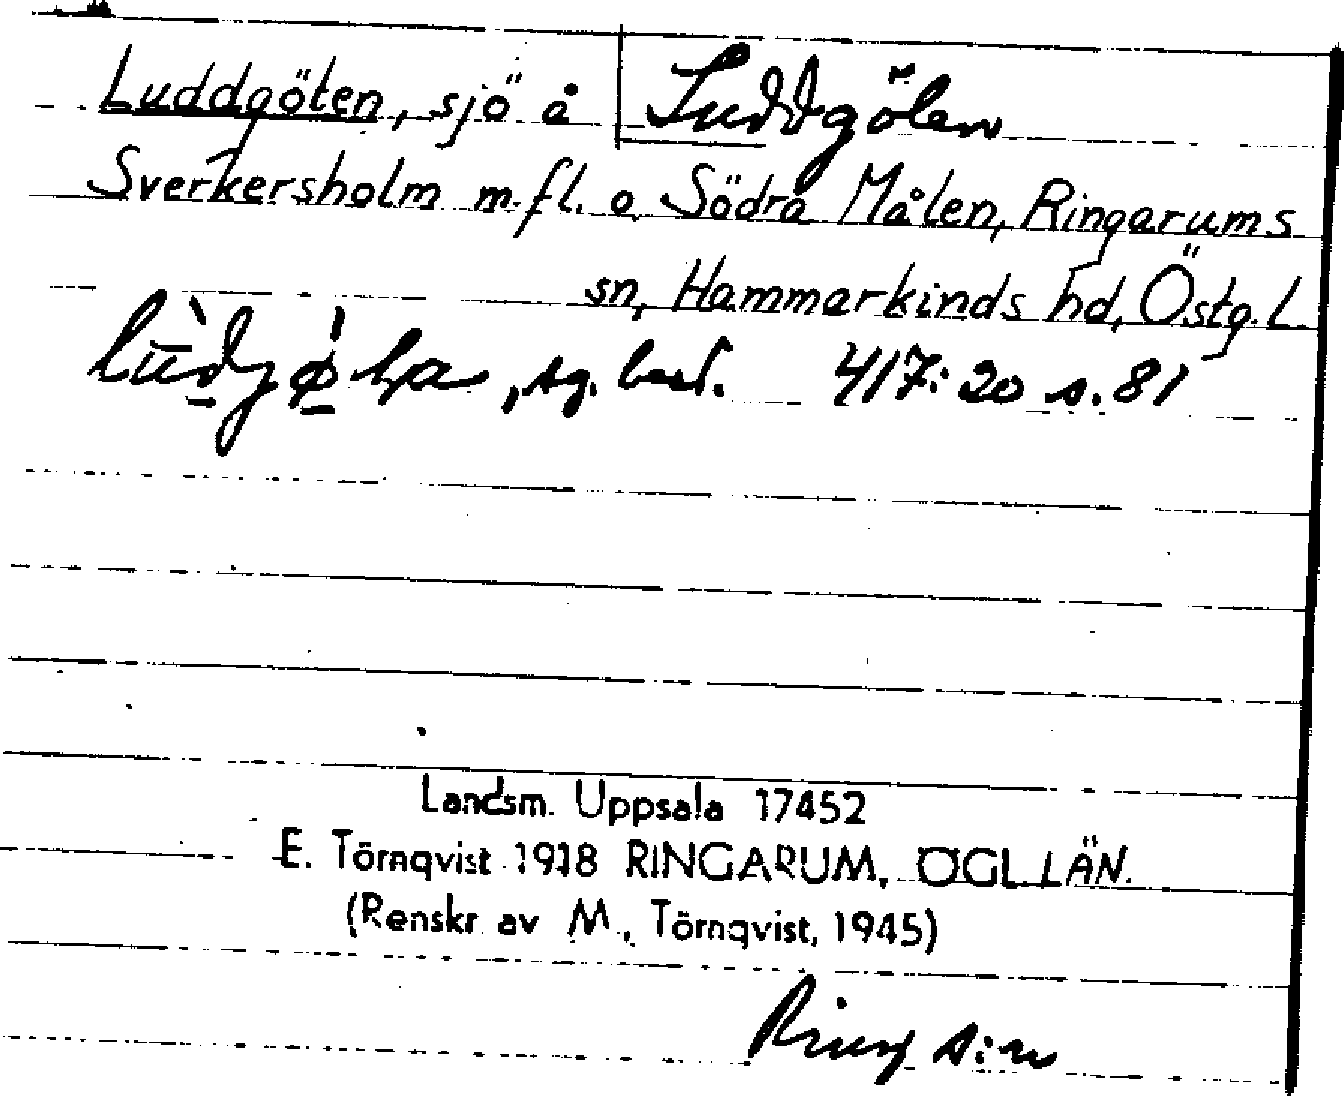 Luddgöten, sjö å Luddgölen
Sverkersholm m.fl. o. Södra Målen, Ringarums
sn, Hammarkinds hd, Östg. L.
, sg. best. 417: 20 s. 81
Landsm. Uppsala 17452
E. Törnqvist 1918 RINGARUM, ÖGL LÄN.
(Renskr. av M. Törnqvist, 1945)